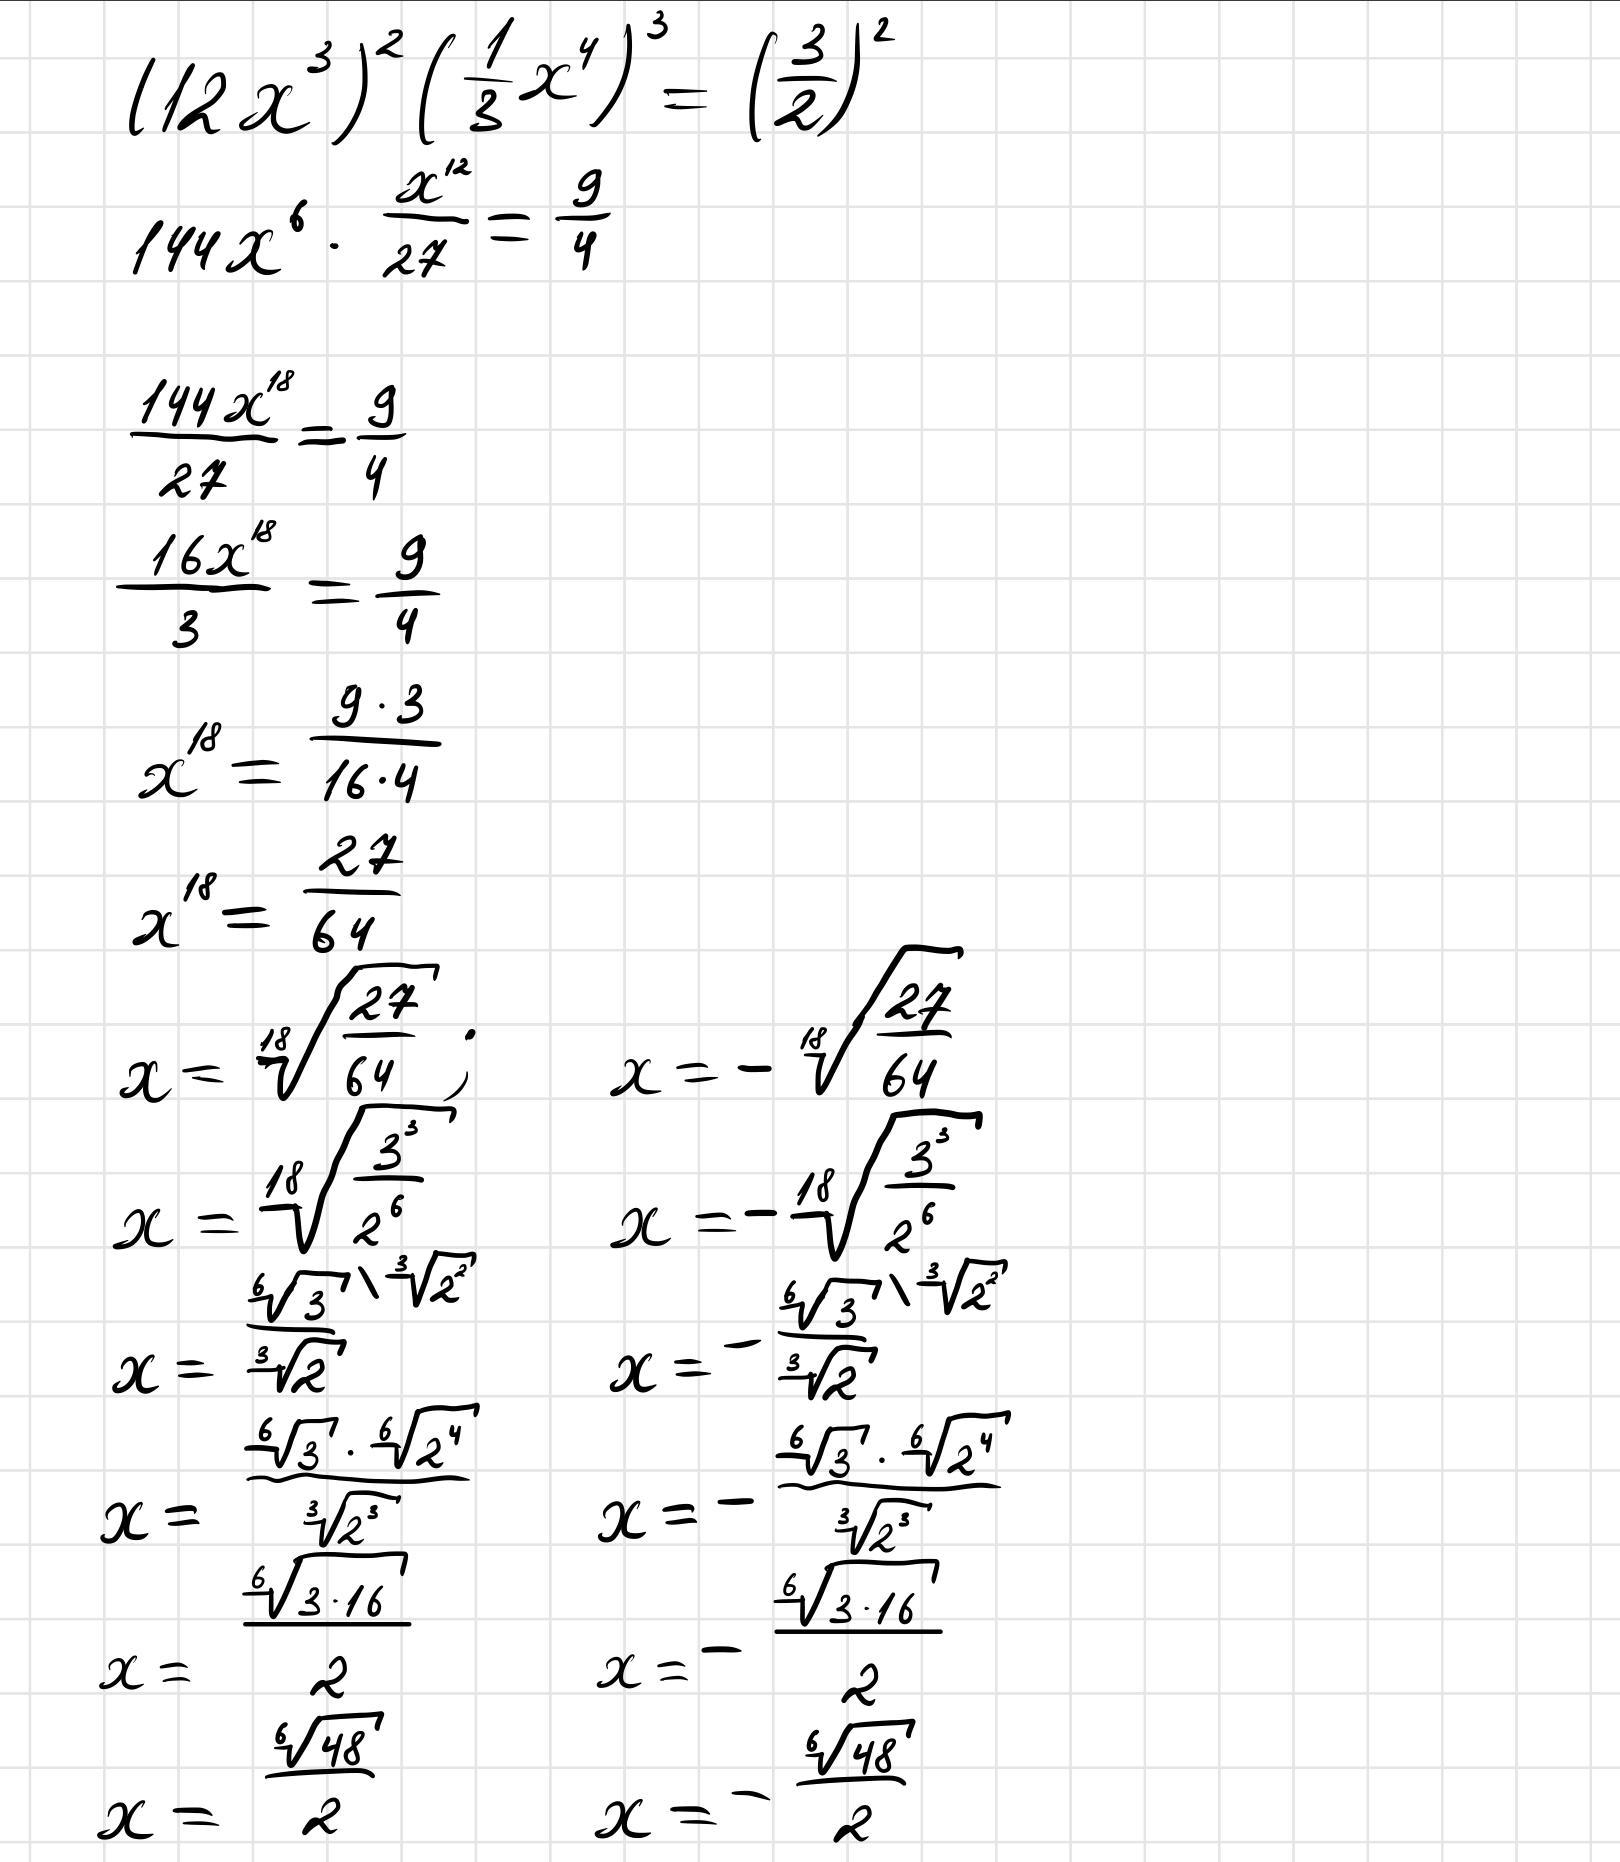 (12x³)² (1/3 x⁴)³ = (3/2)²
144x⁶ · x¹²/27 = 9/4
144x¹⁸/27 = 9/4
16x¹⁸/3 = 9/4
x¹⁸ = 9·3/16·4
x¹⁸ = 27/64
x = ¹⁸√(27/64) ; x = - ¹⁸√(27/64)
x = ¹⁸√(3³/2⁶) x = - ¹⁸√(3³/2⁶)
x = ⁶√3/³√2 \ ³√2² x = - ⁶√3/³√2 \ ³√2²
x = ⁶√3 · ⁶√2⁴/³√2³ x = - ⁶√3 · ⁶√2⁴/³√2³
x = ⁶√(3·16)/2 x = - ⁶√(3·16)/2
x = ⁶√48/2 x = - ⁶√48/2